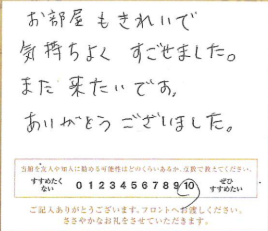 お部屋もきれいで
気持ちよくすごせました。
また来たいです。
ありがとうございました。
当館を友人や知人に勧める可能性はどのくらいあるか、点数で教えてください。
すすめたく
ない
0 1 2 3 4 5 6 7 8 9 10
ぜひ
すすめたい
ご記入ありがとうございます。フロントへお渡しください。
ささやかなお礼をさせていただきます。